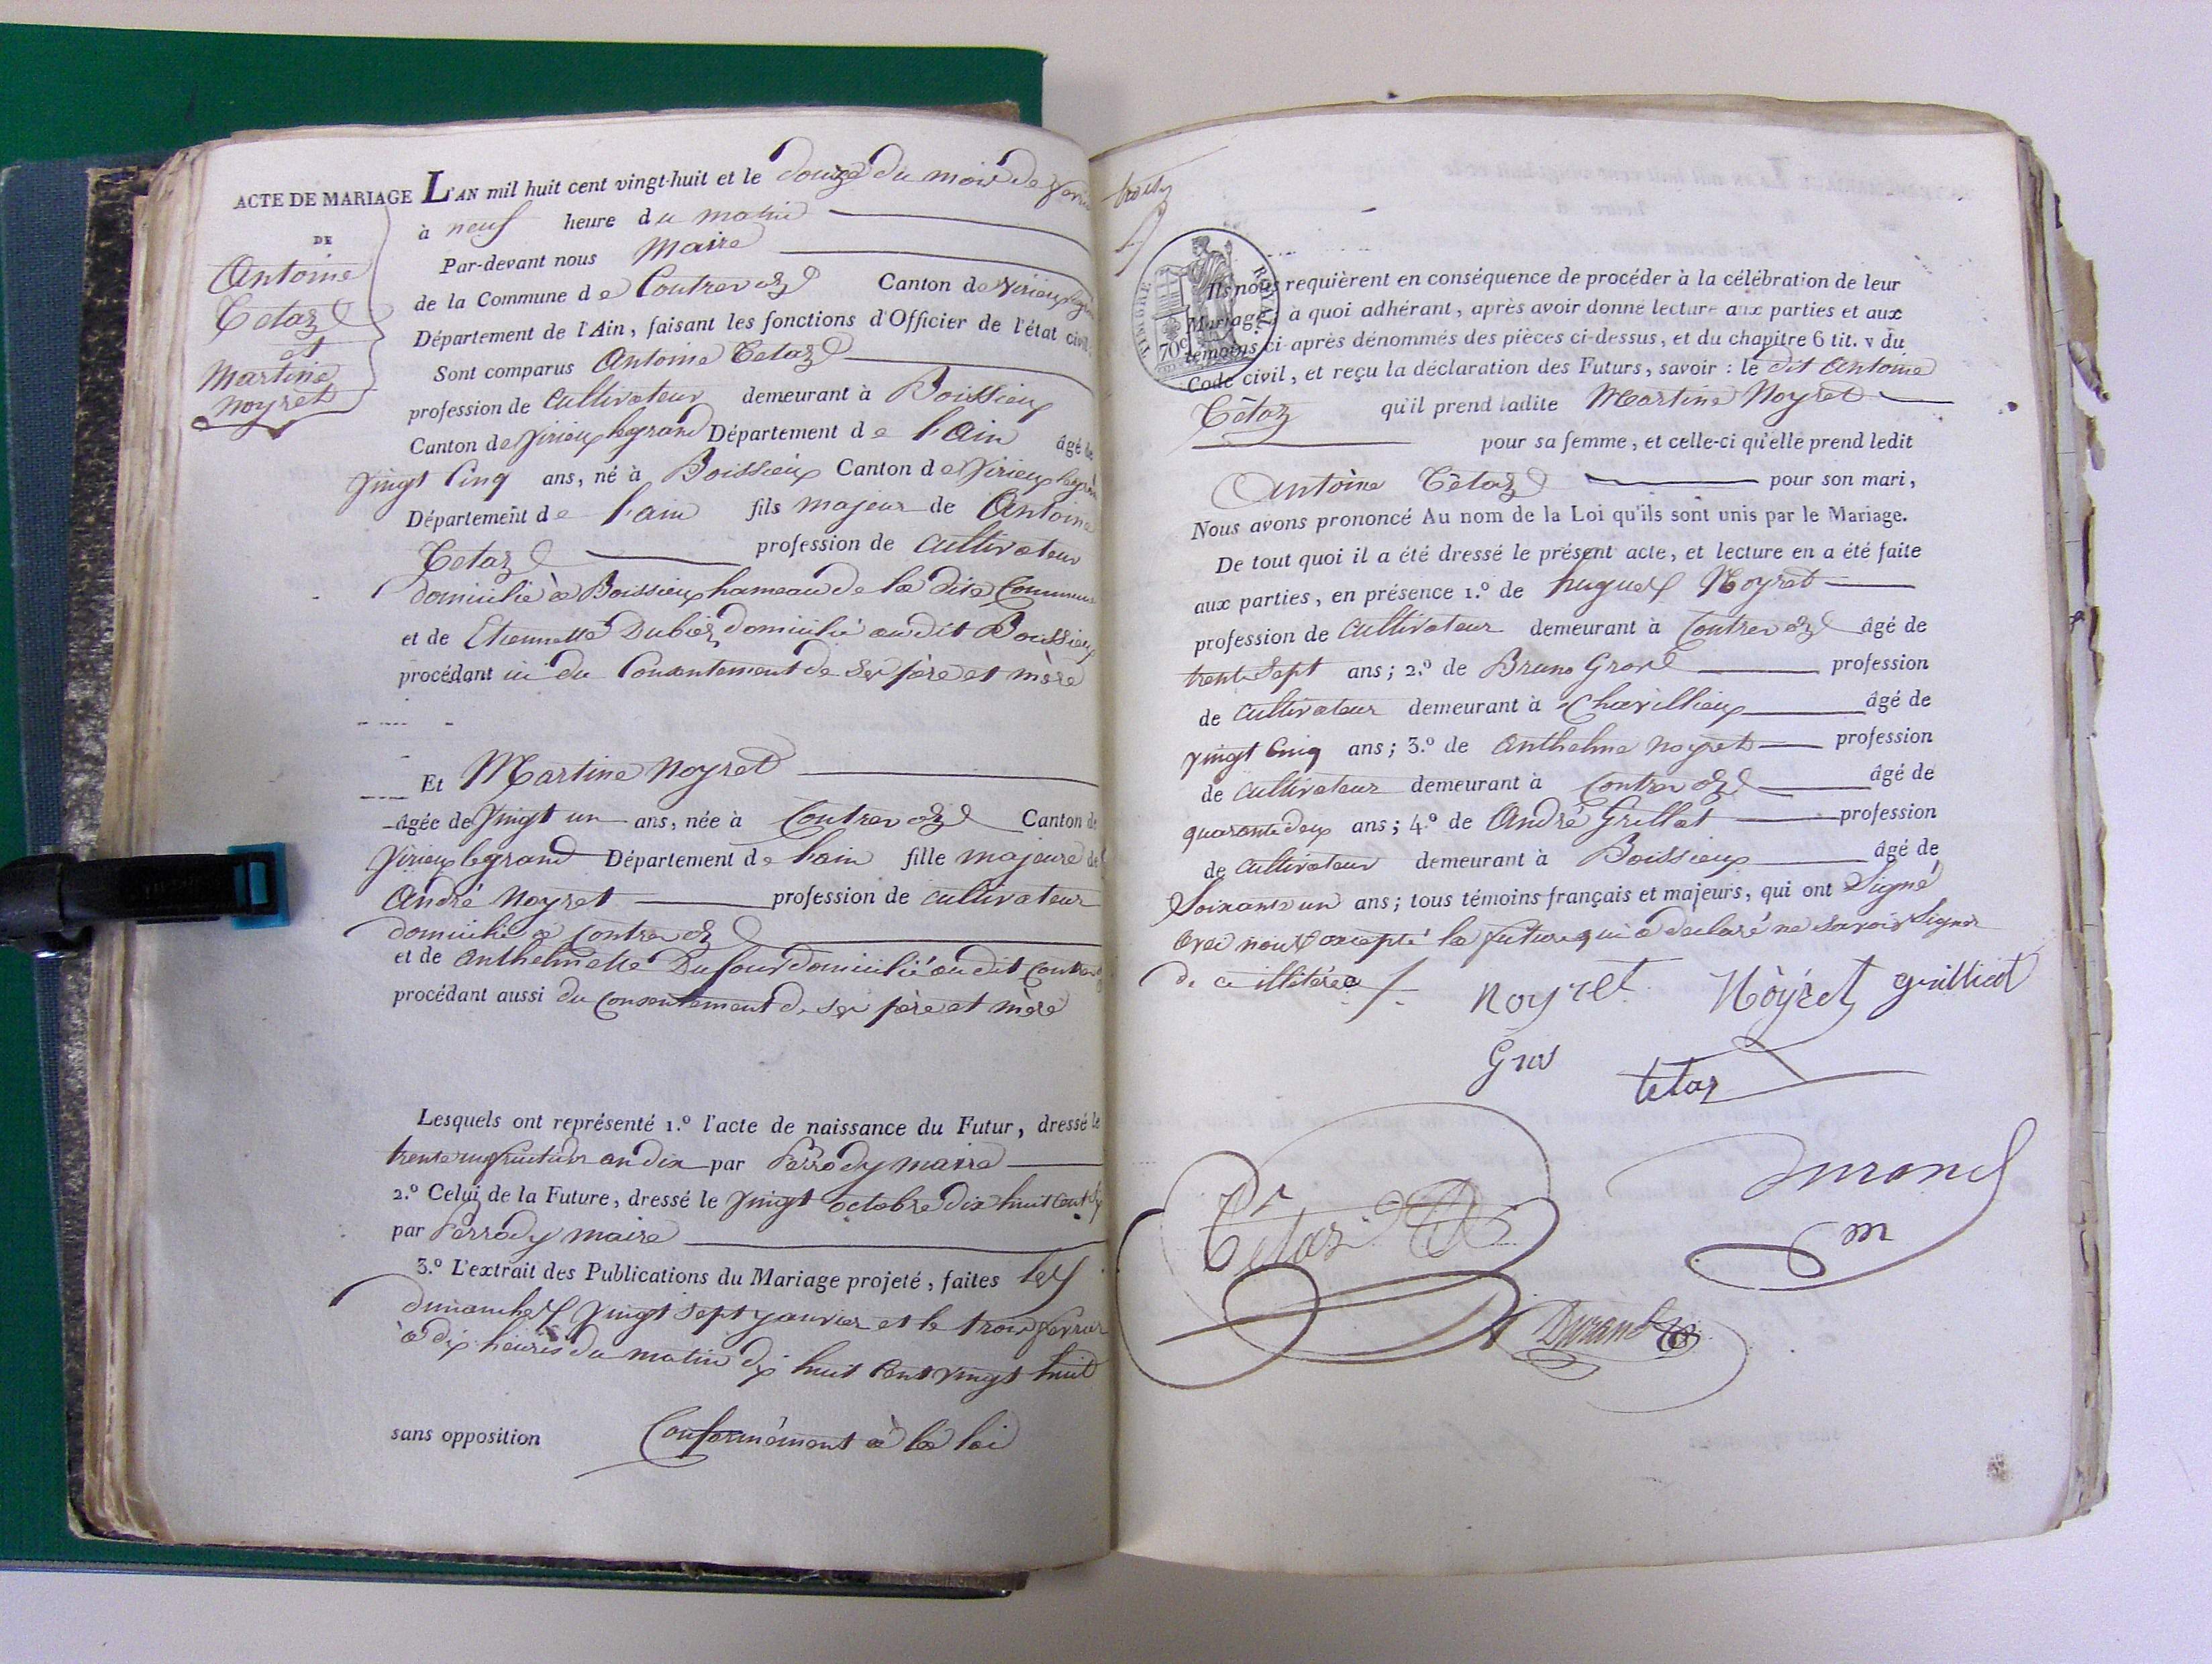 ACTE DE MARIAGE
DE
Antoine
Tetaz
et
Martine
Noyret
L'AN mil huit cent vingt-huit et le douze du mois de
à neuf heure du matin
Par-devant nous Maire
de la Commune de Contrevoz Canton de Virieu
Département de l'Ain, faisant les fonctions d'Officier de l'état civil,
Sont comparus Antoine Tetaz
profession de Cultivateur demeurant à Boissieux
Canton de Virieu legrand Département de l'Ain âgé de
Vingt Cinq ans, né à Boissieux Canton de Virieu
Département de l'ain fils majeur de Antoine
Tetaz profession de cultivateur
domicilié à Boissieux hameau de la dite Commune
et de Etiennette Dubiez domicilié au dit Boissieux
procédant ici du Consentement de ses père et mère
Et Martine Noyret
âgée de Vingt un ans, née à Contrevoz Canton de
Virieu legrand Département de l'ain fille majeure de
André Noyret profession de cultivateur
domicilié à Contrevoz
et de Anthelmette Dufour domicilié au dit
procédant aussi du Consentement de ses père et mère
Lesquels ont représenté 1.º l'acte de naissance du Futur, dressé le
fructidor an dix par Perrody maire
2.º Celui de la Future, dressé le Vingt octobre dix huit cent
par Perrody maire
3.º L'extrait des Publications du Mariage projeté, faites les
dimanches Vingt sept janvier et le trois fevrier
à dix heures du matin dix huit Cent Vingt huit
sans opposition Conformément à la loi
TIMBRE ROYAL
70c
Ils nous requièrent en conséquence de procéder à la célébration de leur
Mariage; à quoi adhérant, après avoir donné lecture aux parties et aux
témoins ci-après dénommés des pièces ci-dessus, et du chapitre 6 tit. v du
Code civil, et reçu la déclaration des Futurs, savoir : le dit Antoine
Tétaz qu'il prend ladite Martine Noyret
pour sa femme, et celle-ci qu'elle prend ledit
Antoine Tétaz pour son mari,
Nous avons prononcé Au nom de la Loi qu'ils sont unis par le Mariage.
De tout quoi il a été dressé le présent acte, et lecture en a été faite
aux parties, en présence 1.º de hugues Noyret
profession de Cultivateur demeurant à Contrevoz âgé de
trente Sept ans; 2.º de Bruno Gros profession
de Cultivateur demeurant à Chavillieux âgé de
vingt Cinq ans; 3.º de Anthelme Noyret profession
de Cultivateur demeurant à Contrevoz âgé de
quarante deux ans; 4.º de André Grillat profession
de Cultivateur demeurant à Boissieux âgé de
Soixante un ans; tous témoins français et majeurs, qui ont Signé
avec nous excepté la future qui a déclaré ne savoir Signer
de ce illitérée
Noyret Nòyret
Gros
tetaz
Tetaz
Durand
m
Durand